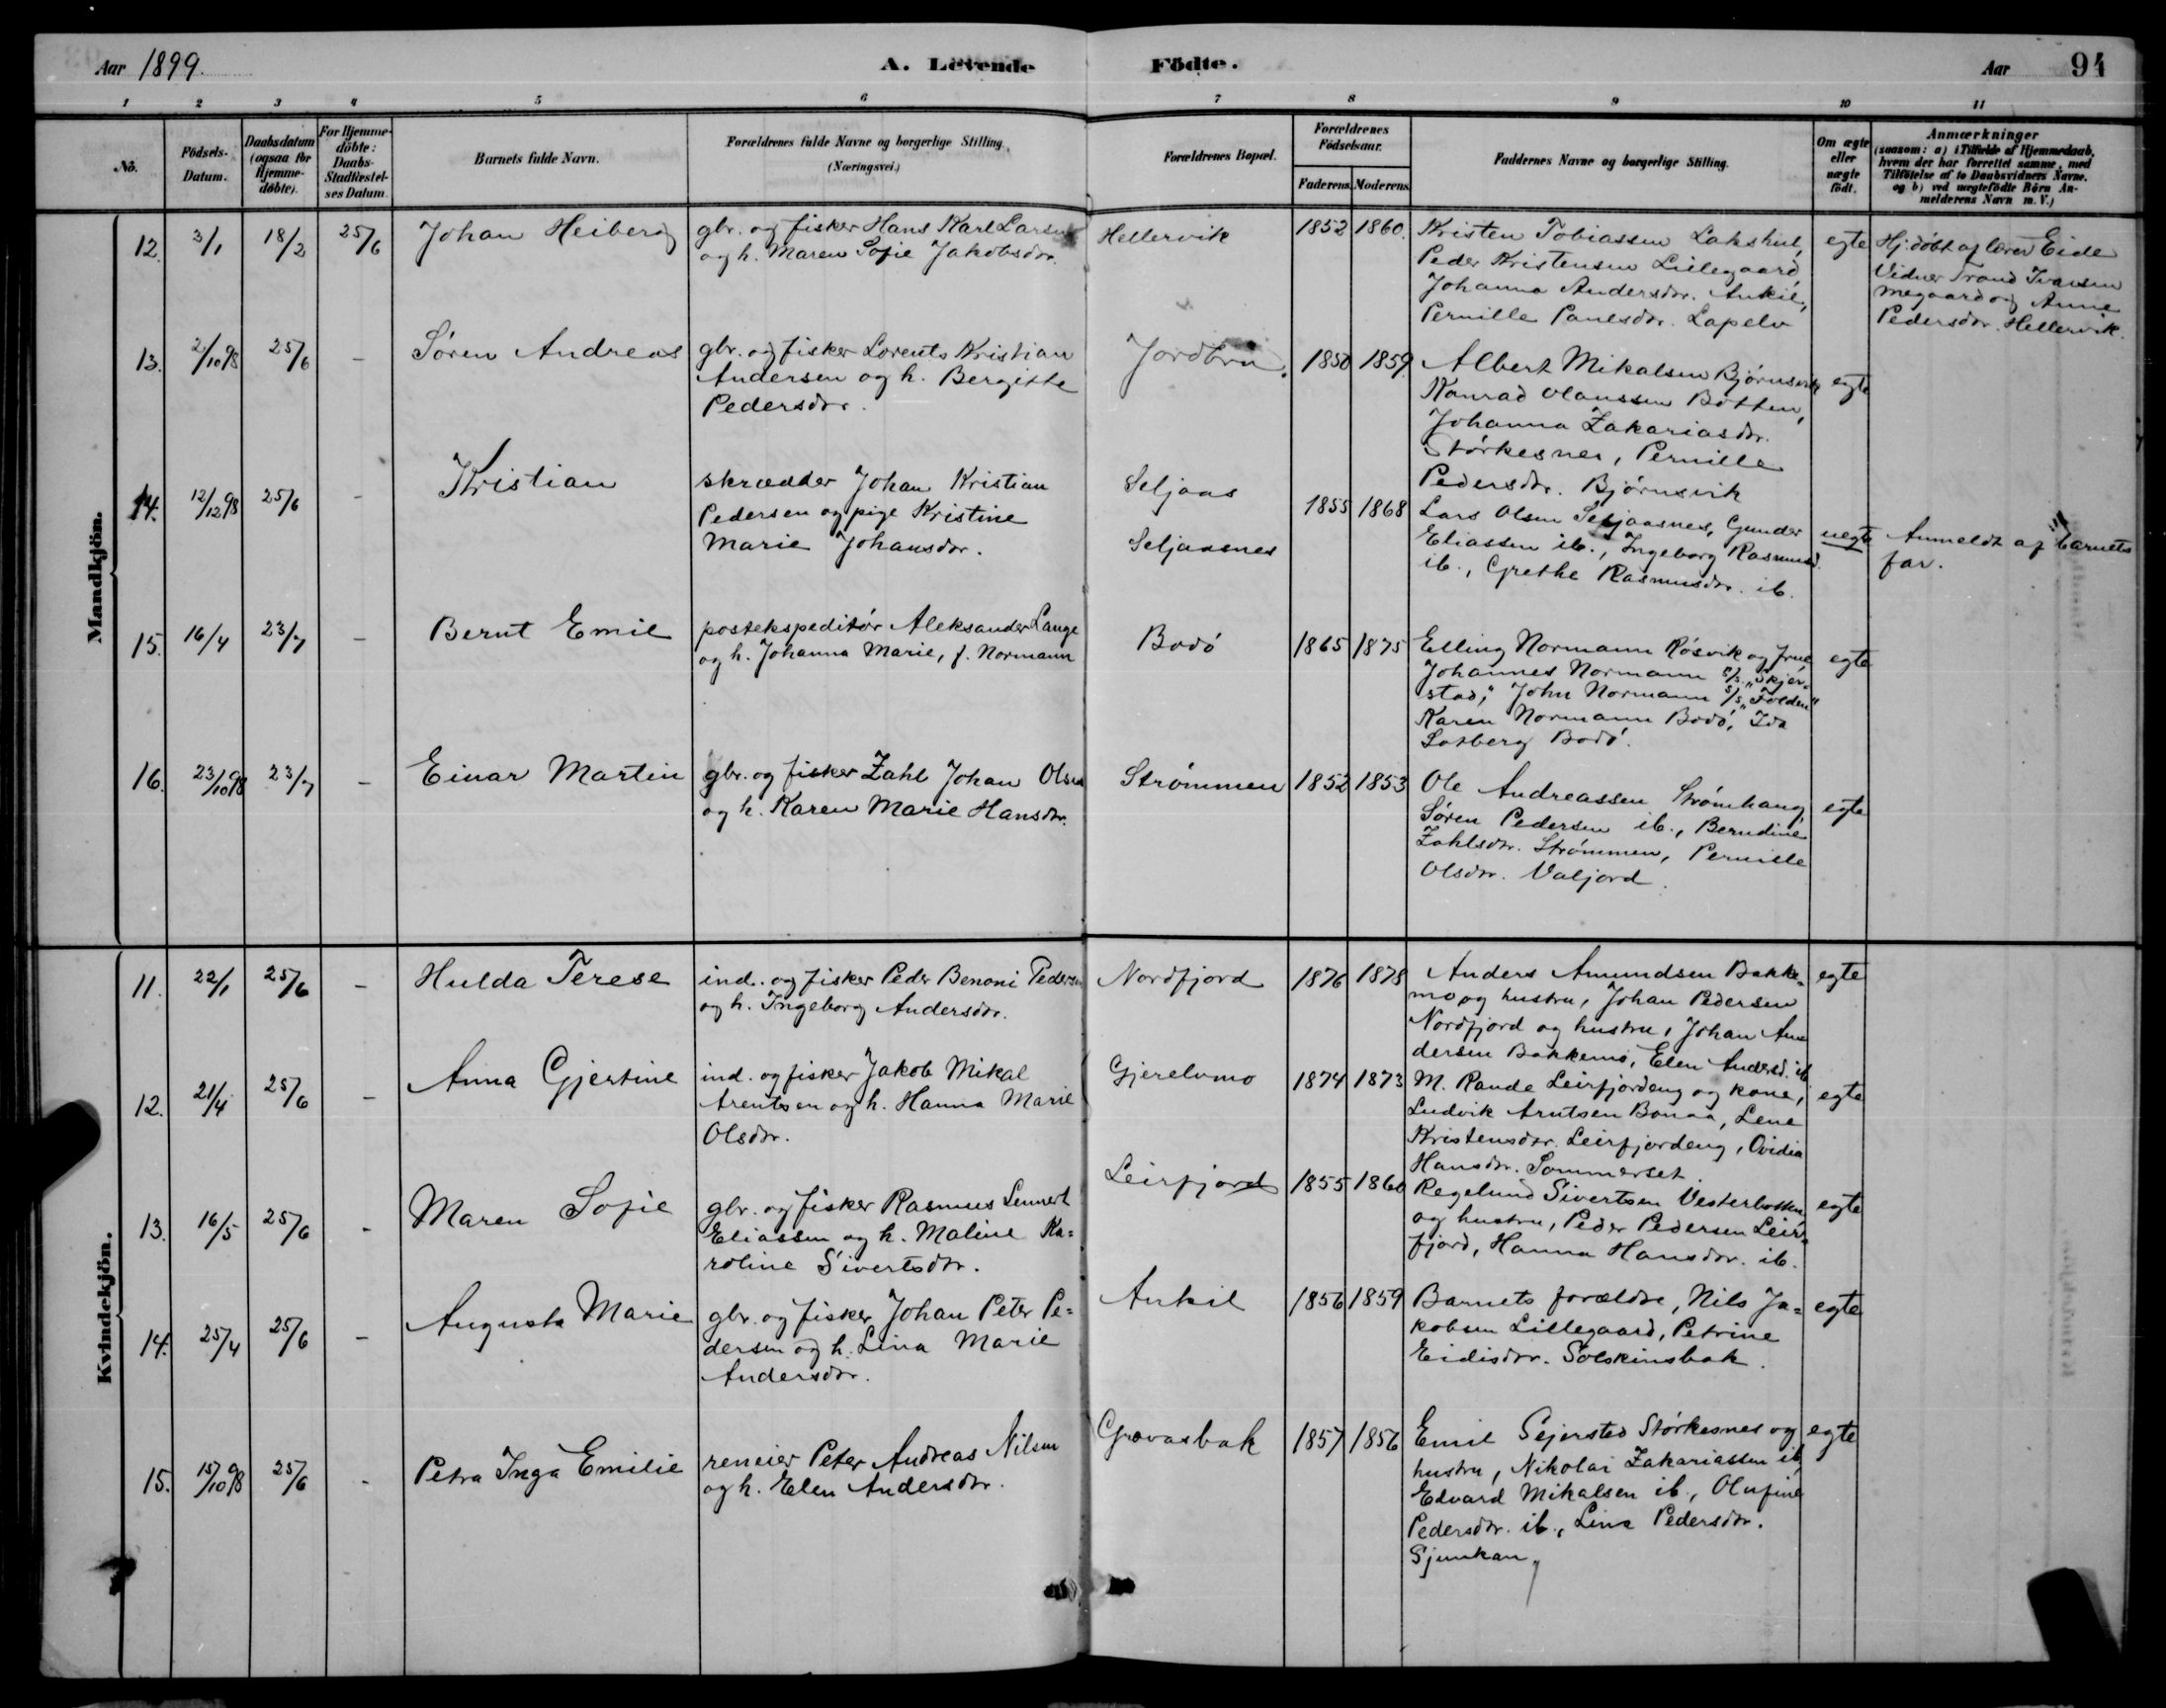 Aar 1899. A. Levende Födte. Aar 94
1 2 3 4 5 6 7 8 9 10 11
No.
Födsels-Datum.
Daabsdatum (ogsaa for Hjemme-døbte).
For Hjemme-döbte: Daabs-Stadfæstel-ses Datum.
Barnets fulde Navn.
Forældrenes fulde Navne og borgerlige Stilling.
(Næringsvei.)
Forældrenes Bopæl.
Forældrenes Födselsaar.
Faderens. Moderens.
Faddernes Navne og borgerlige Stilling.
Om ægte eller uægte födt.
Anmærkninger
(saasom: a) i Tilfælde af Hjemmedaab,
hvem der har forrettet samme, med
Tilföielse af to Daabsvidners Navne.
og b) ved uægtefödte Börn An-
melderens Navn m. V.)
Mandkjön.
12. 3/1 18/2 25/6 Johan Heiberg
gbr. og fisker Hans Karl Larsen
og h. Maren Sofie Jakobsdr.
Hellervik 1852 1860.
Kristen Tobiassen Lakshul,
Peder Kristensen Lillegaard
Johanna Andersdr. Ankil,
Pernille Paulsdr. Lapelv
egte
Hj.döbt af lærer Eide
Vidner Trand Ivarsen
Megaard og Anne
Pedersdr. Hellervik.
13. 2/10 98 25/6 - Søren Andreas
gbr. og fisker Lorents Kristian
Andersen og h. Bergitte
Pedersdr.
Jordbru. 1850 1859.
Albert Mikalsen Bjørnsvik
Konrad Olaussen Botten,
Johanna Zakariasdr.
Størkesnes, Pernille
Pedersdr. Bjørnsvik
egte
14. 12/12 98 25/6 - Kristian
skrædder Johan Kristian
Pedersen og pige Kristine
Marie Johansdr.
Seljaas
Seljaasnes
1855 1868
Lars Olsen Seljaasnes, Gunder
Eliassen ib., Ingeborg Rasmusd.
ib., Grethe Rasmusdr. ib.
uegte
Anmeldt af barnets
far.
15. 16/4 23/7 - Bernt Emil
postekspeditör Aleksander Lange
og h. Johanna Marie, f. Normann
Bodö 1865 1875
Elling Normann Røsvik og frue
Johannes Normann s/s „Skjer-
stad", John Normann s/s „Folden"
Karen Normann Bodö, Ida
Bodö.
egte
16. 23/10 98 23/7 - Einar Martin
gbr. og fisker Zahl Johan Olsen
og h. Karen Marie Hansdr.
Strömmen 1852 1853
Ole Andreassen Strömhaug,
Søren Pedersen ib., Berndine
Zahlsdr. Strömmen, Pernille
Olsdr. Valjord.
egte
Kvindekjön.
11. 22/1 25/6 - Hulda Terese
ind. og fisker Peder Benoni Pedersen
og h. Ingeborg Andersdr.
Nordfjord 1876 1878
Anders Amundsen Bakke-
mo og hustru, Johan Pedersen
Nordfjord og hustru, Johan An-
dersen Bakkemo, Elen Andersd. ib
egte
12. 21/4 25/6 - Anna Gjertine
ind. og fisker Jakob Mikal
Arentsen og h. Hanna Marie
Olsdr.
Gjerelvmo 1874 1873
M. Rande Leirfjordeng og kone,
Ludvik Arntsen Bonaa, Lene
Kristensdr. Leirfjordeng, Ovidia
Hansdr. Sommerset.
egte
13. 16/5 25/6 - Maren Sofie
gbr. og fisker Rasmus Lennert
Eliassen og h. Maline Ka-
roline Sivertsdr.
Leirfjord 1855 1860
Regelund Sivertsen Vesterbotten
og hustru, Peder Pedersen Leir-
fjord, Hanna Hansdr. ib.
egte
14. 25/4 25/6 - Augusta Marie
gbr. og fisker Johan Peter Pe-
dersen og h. Lina Marie
Andersdr.
Ankil 1856 1859
Barnets forældre, Nils Ja-
kobsen Lillegaard, Petrine
Eidisdr. Solskinsbak.
egte
15. 15/10 98 25/6 - Petra Inga Emilie
reneier Peter Andreas Nilsen
og h. Elen Andersdr.
Grovasbak 1857 1856
Emil Gejersted Størkesnes og
hustru, Nikolai Zakariassen ib,
Edvard Mikalsen ib., Olufine
Pedersdr. ib., Lina Pedersdr.
Sjunkan
egte